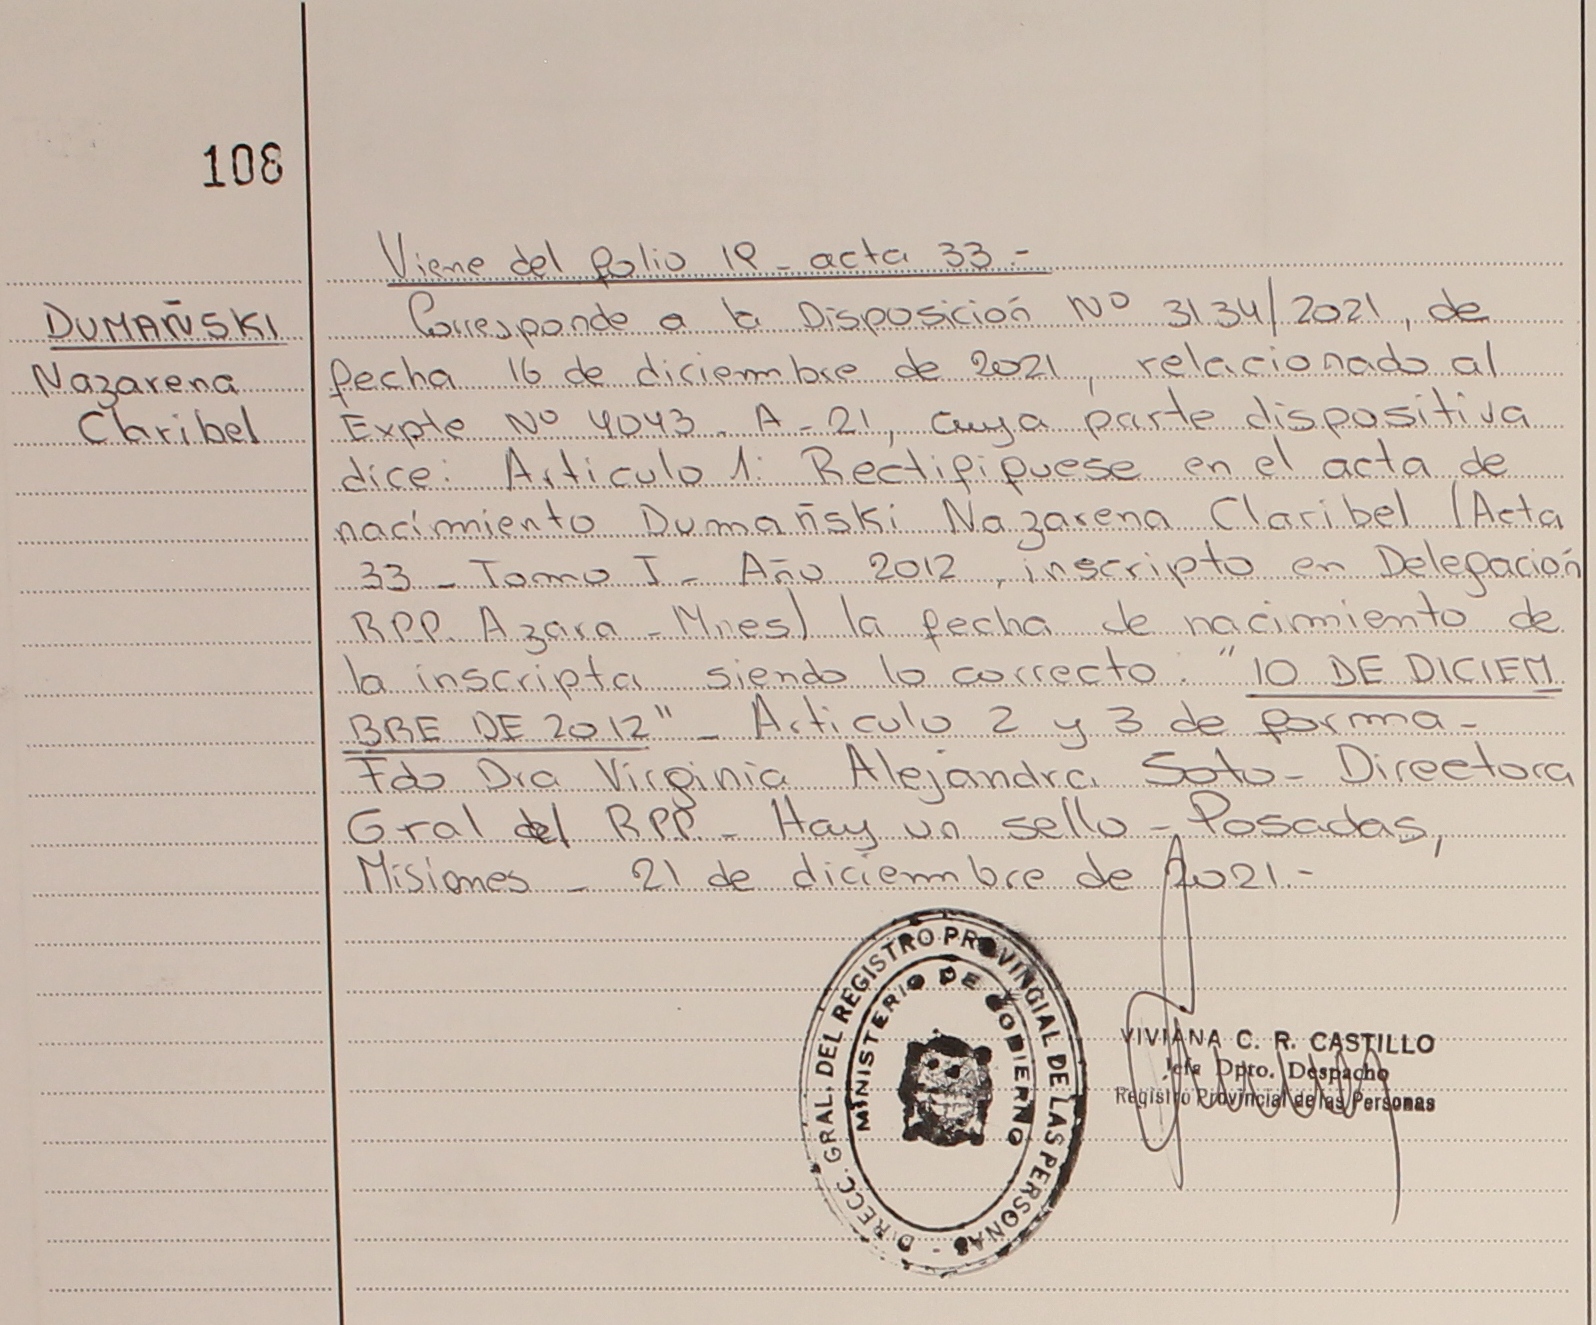 108
Viene del folio 19 - acta 33 -
DUMAÑSKI
Nazarena
Claribel
Corresponde a la Disposición Nº 3134/2021, de
fecha 16 de diciembre de 2021, relacionado al
Expte Nº 4043 - A - 21, cuya parte dispositiva
dice: Articulo 1: Rectifiquese en el acta de
nacimiento Dumañski Nazarena Claribel (Acta
33 - Tomo I - Año 2012, inscripto en Delegación
RPP. Azara - Mnes) la fecha de nacimiento de
la inscripta siendo lo correcto: "10 DE DICIEM
BRE DE 2012" - Articulo 2 y 3 de forma -
Fdo Dra Virginia Alejandra Soto - Directora
Gral del RPP - Hay un sello - Posadas,
Misiones - 21 de diciembre de 2021.-
DIRECC. GRAL. DEL REGISTRO PROVINCIAL DE LAS PERSONAS -
MINISTERIO DE GOBIERNO
VIVIANA C. R. CASTILLO
Jefa Dpto. Despacho
Registro Provincial de las Personas